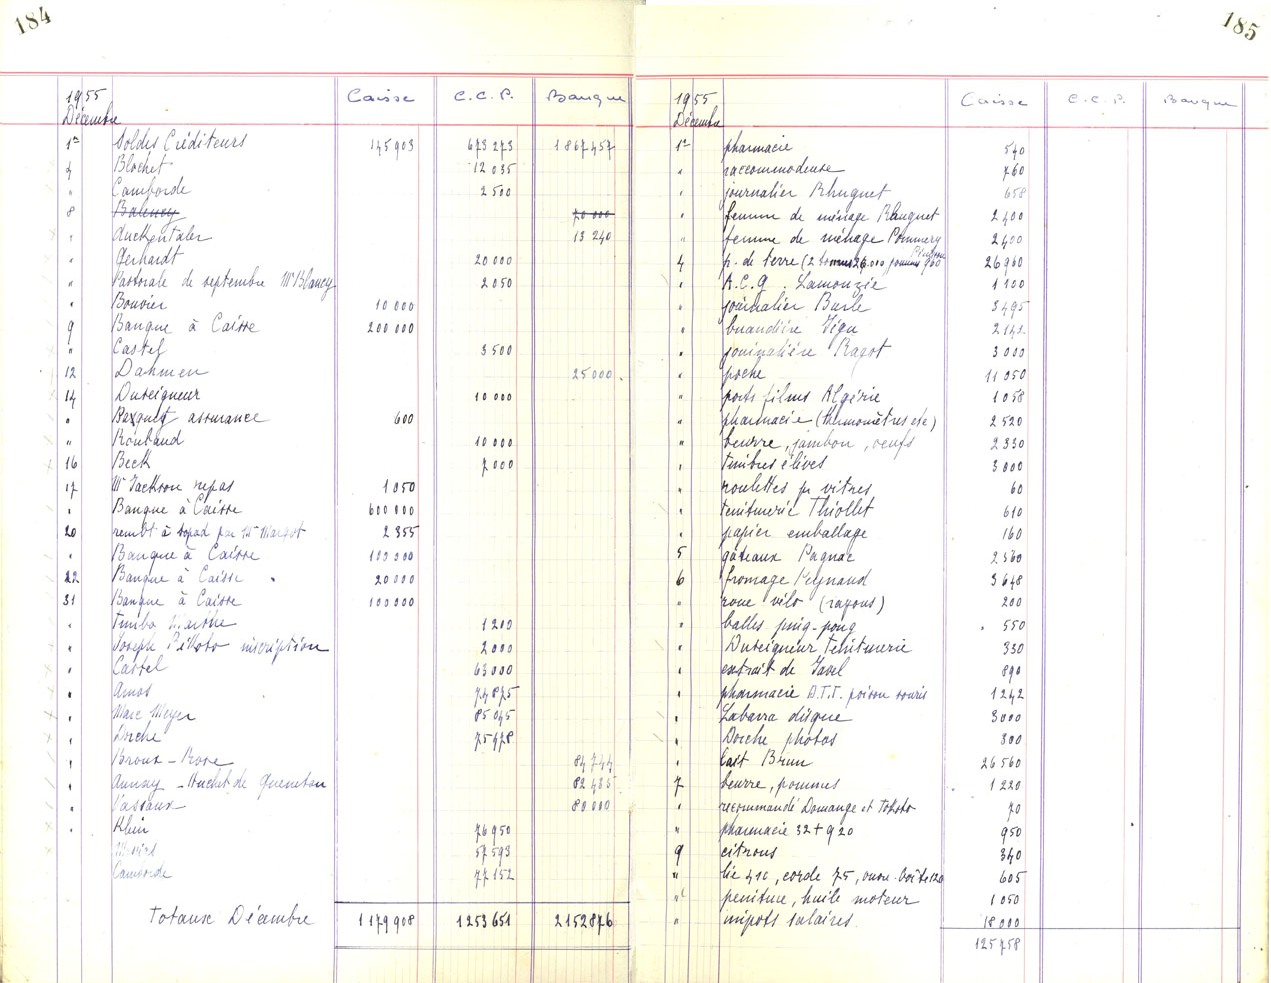 184
1955
Décembre
Caisse C.C.P. Banque
1er Soldes Créditeurs 145903 673273 1867457
7 Blochet 12035
" Camborde 2500
8 Balency 70000
" Auckentaler 13240
" Gerhardt 20000
" Pastorale de septembre Mr Blancy 2050
" Bouvier 10000
9 Banque à Caisse 200000
" Castel 3500
12 Dahmen 25000
14 Duteigneur 10000
" assurance 600
" Roubaud 10000
16 Beck 7000
17 Mr Jackson repas 1050
" Banque à Caisse 600000
20 rembt à par Mr Margot 2355
" Banque à Caisse 100000
22 Banque à Caisse 20000
31 Banque à Caisse 100000
" Marthe 1200
" Joseph inscription 2000
" Castel 63000
" Amos 74875
" Marc Meyer 85045
" Dorche 75978
" Broux - Rose 84744
" Annay - Huchet de Quenetan 82435
" Vassaux 80000
" Klein 76950
57593
Camborde 77152
Totaux Décembre 1179908 1253651 2152876
185
1955
Décembre
Caisse C.C.P. Banque
1er pharmacie 540
" raccommodeuse 760
" journalier Rhuguet 658
" femme de ménage Rhuguet 2400
" femme de ménage Pommery 2400
4 p. de terre (2 tonnes 26.000 pommes 960 26960
" A.C.G. Lamouzie 1100
" journalier Burle 3495
" buandière Vigu
" journalière Ragot 3000
" poche 11050
" ports films Algérie 1058
" pharmacie (thermomètres etc) 2520
" beurre, jambon, oeufs 2330
" timbres élèves 3000
" roulettes pr vitres 60
" teinturerie Thiollet 610
" papier emballage 160
5 gâteaux Pagnac 2560
6 fromage Peynaud 3648
" roue vélo (rayons) 200
" balles ping-pong 550
" Duteigneur teinturerie 330
" extrait de Javel 890
" pharmacie D.T.T. poison souris 1242
" Labarra disque 3000
" Dorche photos 300
" lait Brun 26560
7 beurre, pommes 1220
" recommandé Domange et Tokoto 70
" pharmacie 32 + 920 950
9 citrons 340
" 410, corde 75, boîte 120 605
" peinture, huile moteur 1050
" impôts salaires 18000
125758